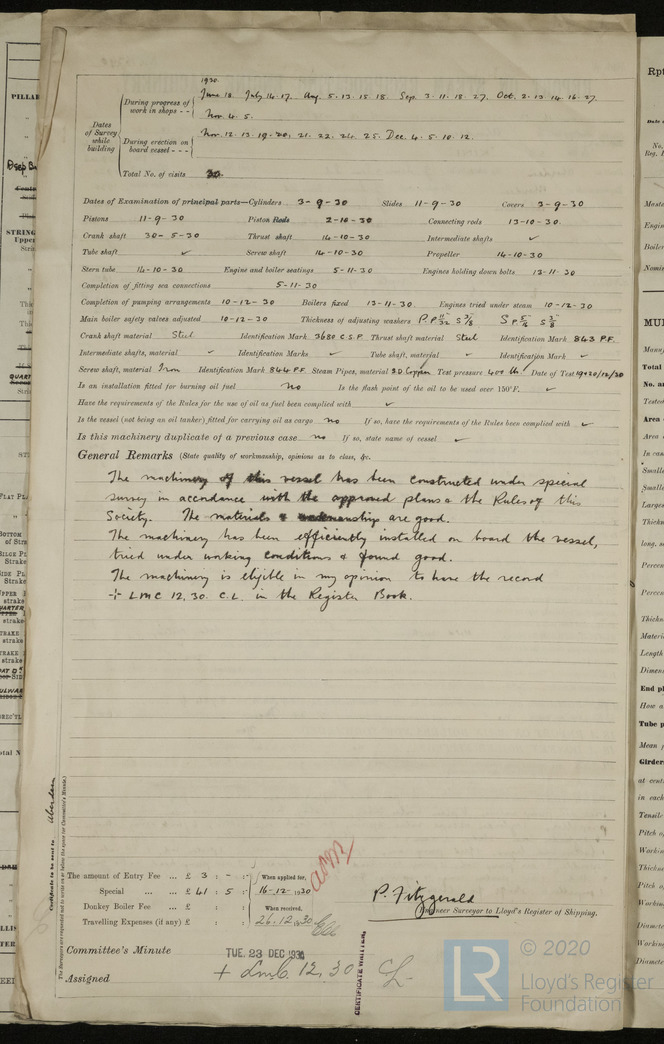 1930
June 18 July 14.17. Aug 5.13.15 18. Sep. 3.11.18 27. Oct. 2.13 14.16.27.
During progress of
work in shops - -
Nov. 4. 5.
Dates
of Survey
while
building
During erection on
board vessel - - -
Nov. 12. 13. 19. 20. 21. 22. 24. 25. Dec. 4. 5. 10. 12.
Total No. of visits
Dates of Examination of principal parts—Cylinders 3-9-30 Slides 11-9-30 Covers 3-9-30
Pistons 11-9-30 Piston Rods 2-10-30 Connecting rods 13-10-30.
Crank shaft 30-5-30 Thrust shaft 14-10-30 Intermediate shafts ✓
Tube shaft ✓ Screw shaft 14-10-30 Propeller 14-10-30
Stern tube 14-10-30 Engine and boiler seatings 5-11-30 Engines holding down bolts 13-11-30
Completion of fitting sea connections 5-11-30
Completion of pumping arrangements 10-12-30 Boilers fixed 13-11-30. Engines tried under steam 10-12-30
Main boiler safety valves adjusted 10-12-30 Thickness of adjusting washers P.P 11/32 S 3/8 S P 5/16 S 3/8
Crank shaft material Steel Identification Mark 3680 C.S.P. Thrust shaft material Steel Identification Mark 843 P.F.
Intermediate shafts, material ✓ Identification Marks ✓ Tube shaft, material ✓ Identification Mark ✓
Screw shaft, material Iron Identification Mark 844 P.F. Steam Pipes, material S.D Copper Test pressure 400 lb. Date of Test
Is an installation fitted for burning oil fuel no Is the flash point of the oil to be used over 150°F. ✓
Have the requirements of the Rules for the use of oil as fuel been complied with ✓
Is the vessel (not being an oil tanker) fitted for carrying oil as cargo no If so, have the requirements of the Rules been complied with ✓
Is this machinery duplicate of a previous case no If so, state name of vessel ✓
General Remarks (State quality of workmanship, opinions as to class, &c.
The machinery of this vessel has been constructed under special
survey in accordance with the approved plans & the Rules of this
Society. The materials & workmanship are good.
The machinery has been efficiently installed on board the vessel,
tried under working conditions & found good.
The machinery is eligible in my opinion to have the record
+ LMC 12, 30. C.L. in the Register Book.
Certificate to be sent to Aberdeen
The amount of Entry Fee ... £ 3 : - :
When applied for,
Special ... ... £ 41 : 5 :
16-12-1930
Donkey Boiler Fee ... £ : :
When received,
Travelling Expenses (if any) £ : :
26.12.1930
P. Fitzgerald
Engineer Surveyor to Lloyd's Register of Shipping.
Committee's Minute
TUE. 23 DEC 1930
Assigned + LMC 12, 30 CL
CERTIFICATE WRITTEN
© 2020
LR
Lloyd's Register
Foundation